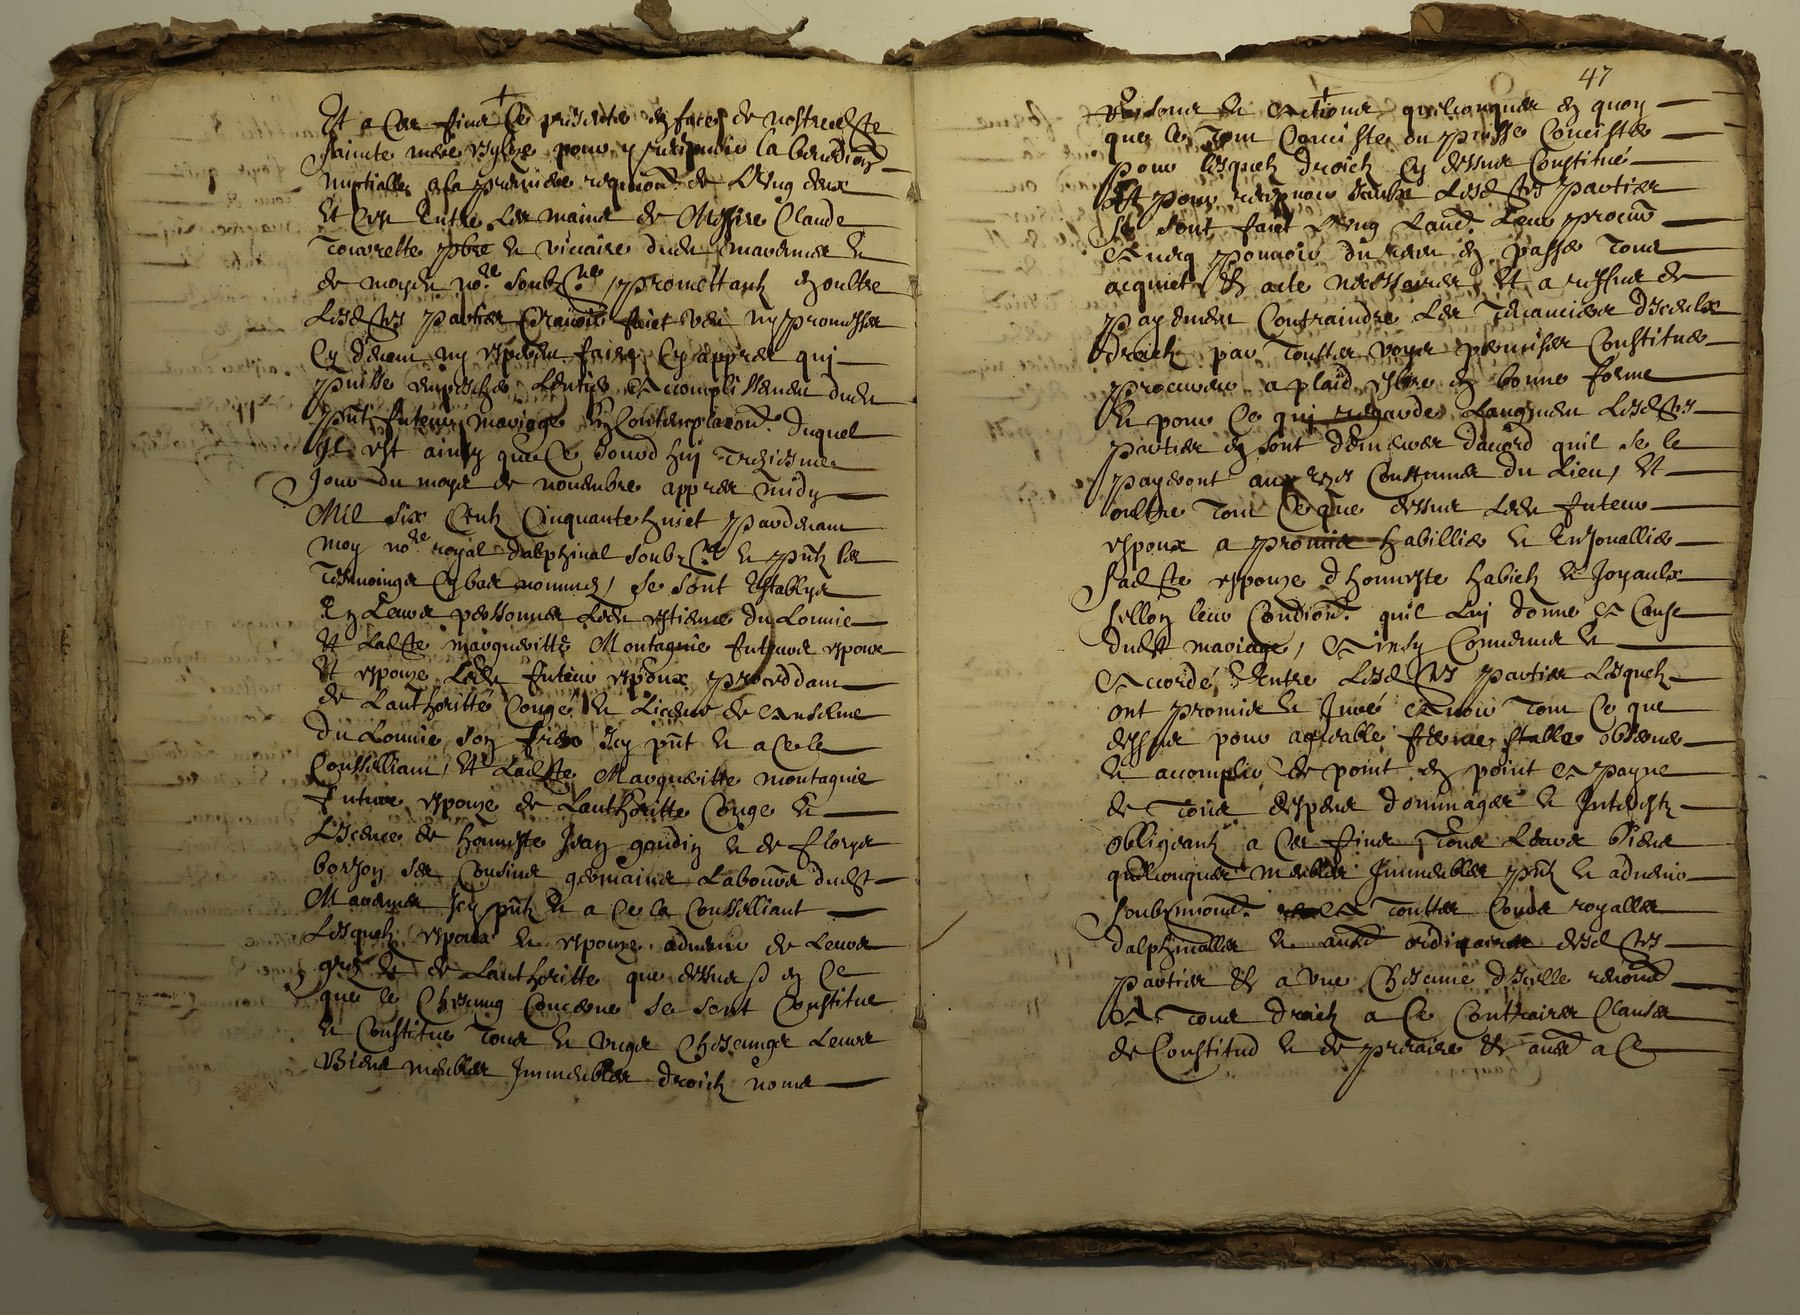 Et a Ces fins Se presenter en face de nostred ste
sainte mere esglize pour y recepvoir la benediction
nuptialle a la premiere requision de L'ung deux
et Ces Entre les mains de Messire Claude
Tourrette pbre et viccaire dud mavernes et
de moyd no.re soubz.né promettant en oultre
Lesd parties N'avoir faict veu ny promesse
Cy devant ny espèrer faire Cy appres quj
puisse empescher Lentier Accomplissement dud
pnt futeur mariage En Contemplaion. duquel
Il est ainsy que Ce Jourd huj Treziesme
Jour du moys de novembre appres midy
Mil Six Centz Cinquante huict Pardevant
moy no.re royal dalphinal soubz.né et pntz les
Tesmoings Cy bas nommez, se sont establys
En Leurs personnes Led estienne du Lonnie
Et Lad.te margueritte Montagnie futeurs espoux
Et espouze Led futeur espoux proceddant
de Lauthoritté Congé et Licence de Anselme
du Lonnie son frere Icy pnt et a Ce le
Conseilliant, Et Lad.te Margueritte montagnie
future espouze de Lauthoritte Conge et
Liscence de honneste Jean gondin et de floris
borjon ses Cousins germains Labours dud
Mavernes Icy pntz et a Ce la Conseilliant
Lesquelz espoux et espouze advenir de Leurs
grez et de Lauthoritte que dessus en Ce
que le Chescung Concerne se sont Constitue
et Constitue Tous et ungs Chescungs Leurs
Biens meubles Immeubles droictz noms
47
raisons et Actions quelconques en quoy
que le Tout Conciste ou puisse Concister
pour lesquelz droictz Cy dessus Constitué
Et pour recepvoir Lesd parties
Se sont faict L'ung Laud. Leur procur
Avecq pouvoir du receu en passer Tous
acquict & acte necessaires Et a reffus de
payement Contraindre Les Tenanciers disceulx
droictz par Touttes voyes permises Constituer
procureur a plaid esleu en bonne forme
et pour Ce quj regarde Laugment Lesd
parties en sont demeures dacord quil se le
payeront aux Constumes du Lieu, Et
oultre Tout Ce que dessus Led futeur
espoux a promis habillier et Enjouallier
sad.te espouze d'honneste habictz et Joyaulx
sellon leur Condion. quil Luj donne A Cause
dud mariage, Ainsy Convenus et
Accordé Entre Lesd parties Lesquelz
ont promis et Juré Avoir Tout Ce que
dessus pour agreable ferme stable observer
et accomplir de point en point A Payne
de Tous despens dommages et Interestz
obligeantz a Ces fins Tous Leurs biens
quelconques meubles Immeubles pntz et advenir
soubzmiond. A Touttes Cours royalles
dalphinalles et auss ordinaires desd
parties & a une Chescune d'icelle renond
A Tous droictz a Ce Contraires Clauses
de Constitud et de precaire & auss a Ce